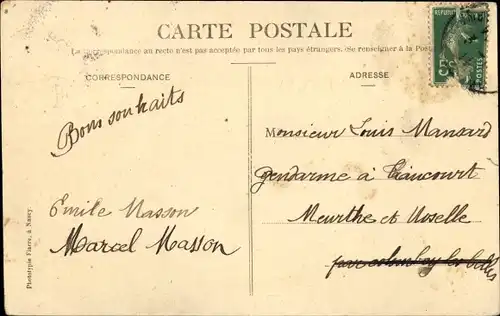 CARTE POSTALE
La correspondance au recto n'est pas acceptée par tous les pays étrangers. (Se renseigner à la Poste
CORRESPONDANCE
ADRESSE
Bons souhaits
Emile Masson
Marcel Masson
Monsieur Louis Mansard
Gendarme à
Meurthe et Moselle
par colombey les belles
Phototypie Fierre, à Nancy
5c
POSTES